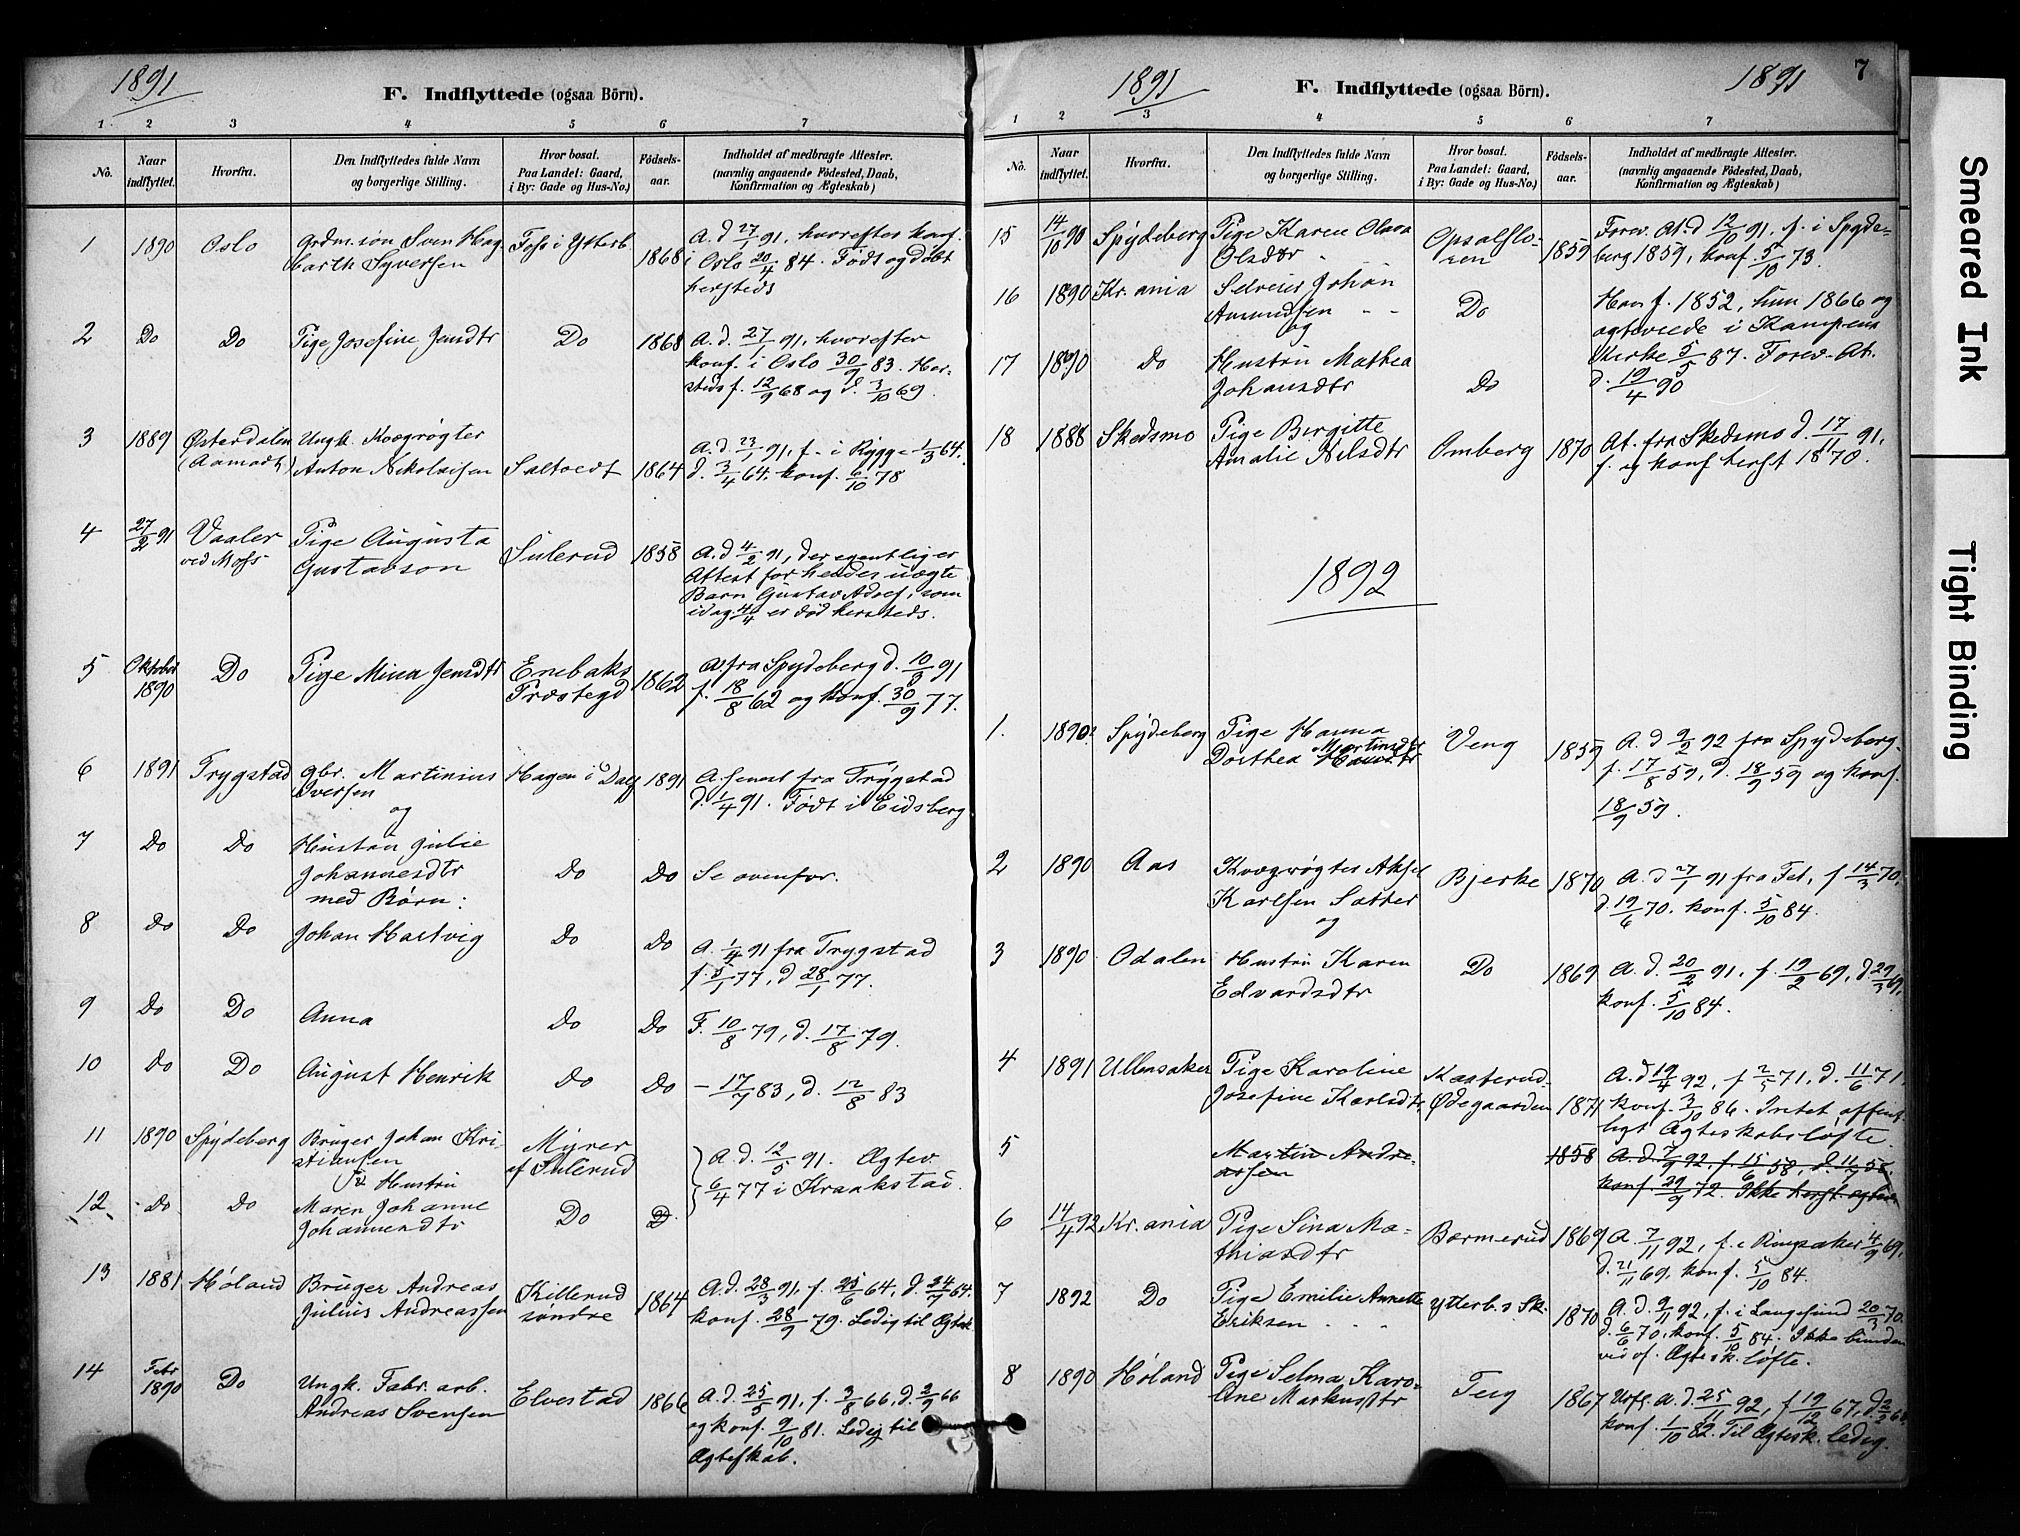 1891
F. Indflyttede (ogsaa Börn).
1 2 3 4 5 6 7
No.
Naar indflyttet.
Hvorfra.
Den Indflyttedes fulde Navn og borgerlige Stilling.
Hvor bosat. Paa Landet: Gaard, i By: Gade og Hus-No.)
Födsels-aar.
Indholdet af medbragte Attester. (navnlig angaaende Födested, Daab, Konfirmation og Ægteskab)
1 1890 Oslo Grdm.søn Sven Hag- Foss i Ytterb. 1868 A. d 27/1 91, hvorefter konf.
barth Syversen i Oslo 20/4 84. Født og døbt
hersteds
2 Do Do Pige Josefine Jensdtr Do 1868 A. d. 27/1 91, hvorefter
konf. i Oslo 30/9 83. Her-
steds f. 12/9 68 og d. 3/10 69.
3 1889 Østerdalen Ungk. Kvægrøgter
(Aamodt) Anton Nikolaisen Saltvedt 1864 A. d. 23/1 91, f. i Rygge 1/3 64.
d. 3/4 64. konf. 6/10 78
4 27/2 91 Vaaler Pige Augusta
ved Moss Gustavson Sulerud 1858 A. d 4/2 91, der egentlig er
Attest for hendes uægte
Barn Gustav Adolf, som
idag 4/4 er død hersteds.
5 Oktober Do Pige Mina Jensdtr Enebaks 1862 A. fra Spydeberg d. 10/3 91
1890 Præstegd f. 18/8 62 og konf. 30/9 77.
6 1891 Trygstad gbr. Martinius Hagen i Dalef 1891 A. senest fra Trygstad
Iversen d. 1/4 91. Født i Eidsberg
og
7 Do Do Hustru Julie
Johannesdtr Do Do Se ovenfor.
med Børn:
8 Do Do Johan Hartvig Do Do A. 1/4 91 fra Trygstad
f. 5/1 77, d 28/1 77.
9 Do Do Anna Do Do F. 10/8 79, d. 17/8 79.
10 Do Do August Henrik Do Do – 17/7 83, d. 12/8 83
11 1890 Spydeberg Bruger Johan Kri- Myrer
stiansen af Sulerud A. d. 12/5 91. Ægtev.
& Hustru 6/4 77 i Kraakstad.
12 Do Do Maren Johanne
Johannesdtr Do D.
13 1881 Høland Bruger Andreas Killerud 1864 A. d. 28/3 91, f. 25/6 64, d. 24/7 64.
Julius Andreassen søndre konf. 28/9 79. Ledig til Ægtesk.
14 Febr Do Ungk. Fabr. arb. Elvestad 1866 A. d. 25/5 91, f. 3/8 66, d. 2/9 66
1890 Andreas Svensen og konf. 9/10 81. Ledig til
Ægteskab.
1891
F. Indflyttede (ogsaa Börn).
1891
7
1 2 3 4 5 6 7
No.
Naar indflyttet.
Hvorfra.
Den Indflyttedes fulde Navn og borgerlige Stilling.
Hvor bosat. Paa Landet: Gaard, i By: Gade og Hus-No.)
Födsels-aar.
Indholdet af medbragte Attester. (navnlig angaaende Födested, Daab, Konfirmation og Ægteskab)
15 14/10 90 Spydeberg Pige Karen Olava Opsalflo- 1859 Forev. At. d 12/10 91, f. i Spyde-
Olsdtr ren berg 1859, konf. 5/10 73.
16 1890 Kr.ania Johan
Amundsen Do Han f. 1852, hun 1866 og
og ægteviede i Kampens
17 1890 Do Hustru Mathea Kirke 5/5 87. Forev. At.
Johansdtr Do d. 19/4 90
18 1888 Skedsmo Pige Birgitte Omberg 1870 At. fra Skedsmo d. 17/11 91,
Amalie Nilsdtr f. og konf herst 1870.
1892
1. 1890? Spydeberg Pige Hanna Veng 1859 A. d 9/2 92 fra Spydeberg.
Dorthea Martinsdtr f. 17/8 59, d. 18/9 59 og konf.
18/9 59.
2 1890 Aas Kvægrøgter Aksel Bjerke 1870 A. d 27/1 91 fra Fet, f 14/3 70,
Karlsen Sæther d. 19/6 70. konf. 5/10 84.
og
3 1890 Odalen Hustru Karen Do 1869 A. d. 20/2 91, f. 19/2 69, d. 29/3 69,
Edvardsdtr konf. 5/10 84.
4 1891 Ullensaker Pige Karoline Kaaterud- A. d 19/4 92, f 2/5 71, d. 11/6 71.
Josefine Karlsdtr Ødegaarden 1871 konf. 3/10 86. Intet offent-
ligt Ægteskabsløfte.
5 Martin Andre- 1858 A. d. 7/9 92, f. 15/6 58, d. 11/7 58,
assen konf. 29/9 72. Ikke hersh. ægtev.
6 14/4 92 Kr.ania Pige Sina Ma- Bærmerud 1869 A. 7/11 92, f. i Ringsaker 4/9 69,
thiasdtr d. 21/11 69, konf. 5/10 84.
7 1892 Do Pige Emilie Annette Ytterb. s Sk. 1870 A. d. 9/11 92, f. i Langesund 20/3 70.
Eriksen d. 6/6 70. konf. 5/10 84. Ikke bunden
ved of. Ægtesk.løfte.
8 1890 Høland Pige Selma Karo- Teig 1867 Udfs. A. d. 25/11 92, f 19/12 67, d 2/2 68
line Markusdtr konf. 1/10 82. Til Ægtesk. ledig.
Smeared Ink
Tight Binding